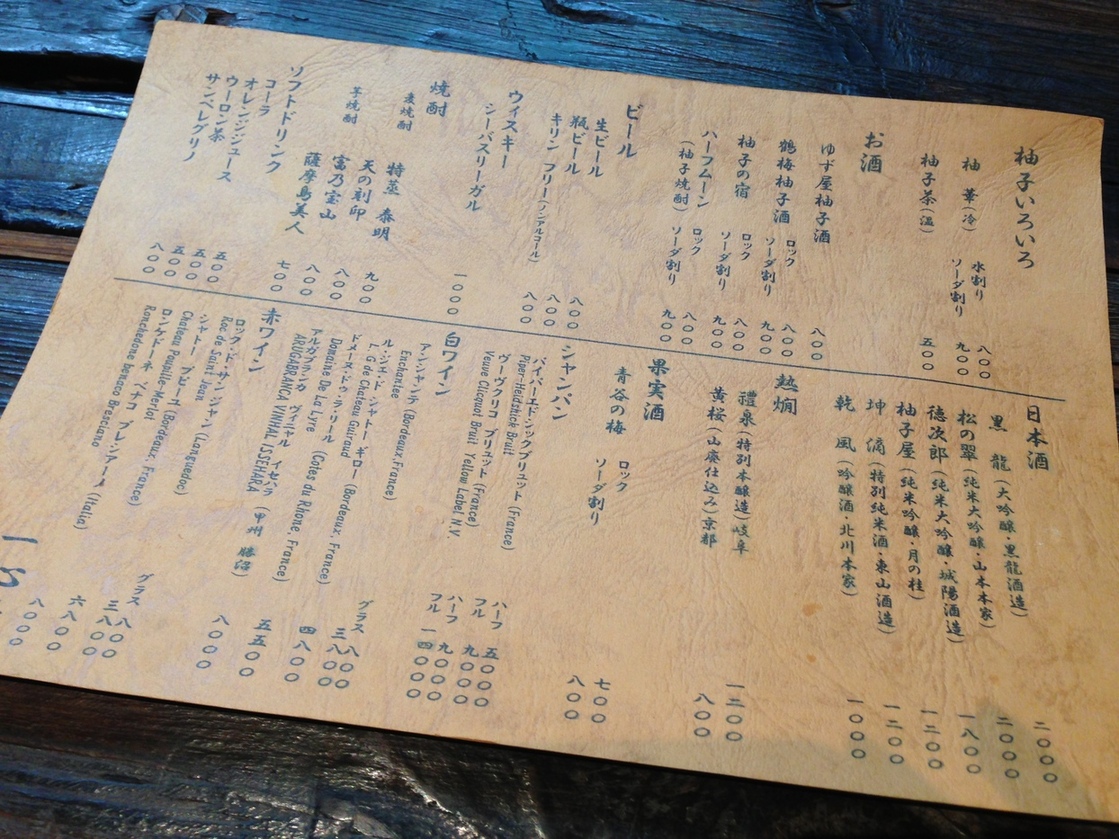 柚子いろいろ
柚 華(冷) 水割り 八〇〇
ソーダ割り 九〇〇
柚子茶(温) 五〇〇
お酒
ゆず屋柚子酒 八〇〇
鶴梅柚子酒 ロック 八〇〇
ソーダ割り 九〇〇
柚子の宿 ロック 八〇〇
ソーダ割り 九〇〇
ハーフムーン ロック 八〇〇
(柚子焼酎) ソーダ割り 九〇〇
ビール
生ビール 八〇〇
瓶ビール 八〇〇
キリン フリー(ノンアルコール) 八〇〇
ウィスキー
シーバスリーガル 一〇〇〇
焼酎
麦焼酎 特蒸 泰明 九〇〇
天の刻印 八〇〇
芋焼酎 富乃宝山 八〇〇
薩摩島美人 七〇〇
ソフトドリンク
コーラ 五〇〇
オレンジジュース 五〇〇
ウーロン茶 五〇〇
サンペレグリノ 八〇〇
日本酒
黒 龍(大吟醸・黒龍酒造) 二〇〇〇
松の翠(純米大吟醸・山本本家) 二〇〇〇
徳次郎(純米大吟醸・城陽酒造) 一八〇〇
柚子屋(純米吟醸・月の桂) 一二〇〇
坤 滴(特別純米酒・東山酒造) 一二〇〇
乾 風(吟醸酒・北川本家) 一〇〇〇
熱燗
禮泉(特別本醸造)岐阜 一二〇〇
黄桜(山廃仕込み)京都 八〇〇
果実酒
青谷の梅 ロック 七〇〇
ソーダ割り 八〇〇
シャンパン
パイパーエドシックブリュット(France) ハーフ 五〇〇〇
Piper-Heidsick Bruit フル 九〇〇〇
ヴーヴクリコ ブリュット(France) ハーフ 九〇〇〇
Veuve Clicquot Bruit Yellow Label N.V. フル 一四〇〇〇
白ワイン
アンシャンテ(Bordeaux.France) グラス 八〇〇
Enchantee 三八〇〇
ル・ジェ・ド・シャトー・ギロー(Bordeaux, France)
L G de Chateau Guiraud 四八〇〇
ドメーヌ・ドゥ・ラ・リール(Cotes du Rhone, France)
Domaine De La Lyre 五五〇〇
アルガブランカ ヴィニャル イセハラ(甲州 勝沼)
ARUGABRANCA VINHAL ISSEHARA 八〇〇〇
赤ワイン
ロック・ド・サン・ジャン(Languedoc) グラス 八〇〇
Roc de Saint Jean 三八〇〇
シャトー・プピーユ(Bordeaux, France)
Chateau Poupille-Merlot 六八〇〇
ロンケドーネ ベナコ ブレシアーノ(Italia)
Ronchedone Benaco Bresciano 八〇〇〇